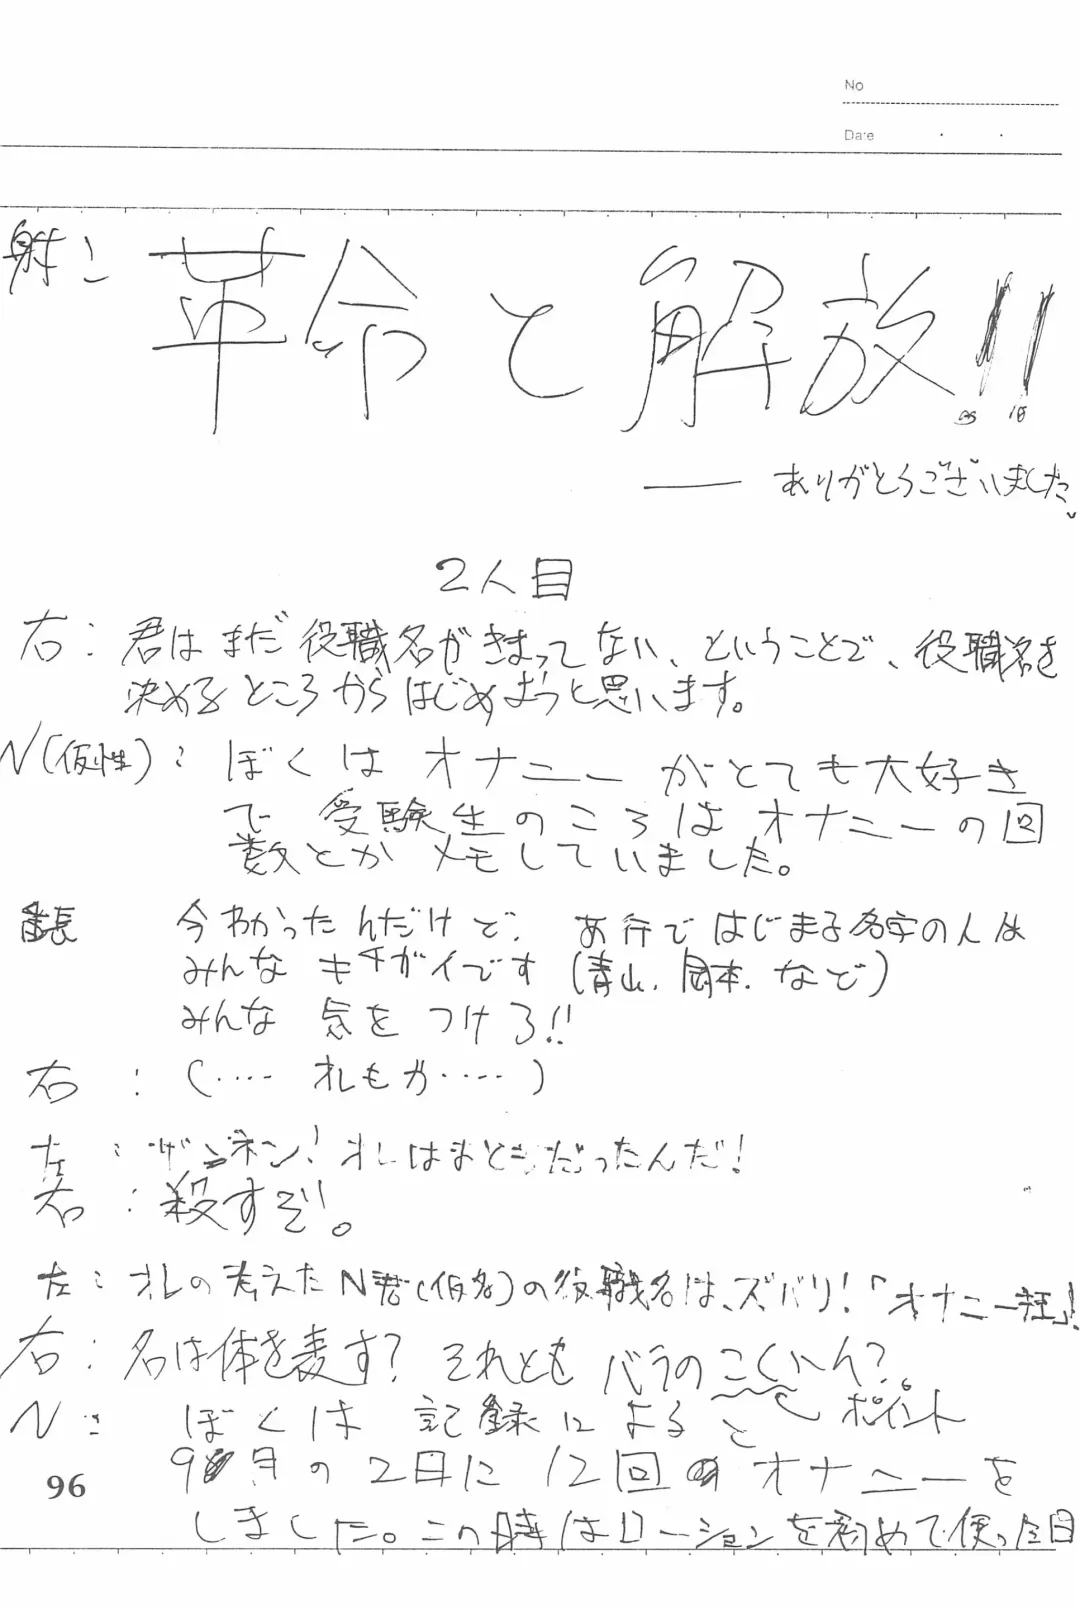 No
Date
射: 革命と解放!!
ありがとうございました
2人目
右: 君はまだ役職名がきまってない、ということで、役職名を
決めるところからはじめようと思います。
N(仮性): ぼくはオナニーがとても大好き
で受験生のころはオナニーの回
数とかメモしていました。
今わかったんだけど、あ行ではじまる名字の人は
みんなキチガイです(青山、岡本、など)
みんな気をつけろ!!
右: (.... オレもか.....)
左: ザンネン!オレはまともだったんだ!
右: 殺すぞ!。
左: オレの考えたN君(仮名)の役職名は、ズバリ!「オナニー狂」!
右: 名は体を表す?それともバラのこくハん?
ポイント
N: ぼくは記録によると
9月の2日に12回オナニーを
しました。この時はローションを初めて使った日
96